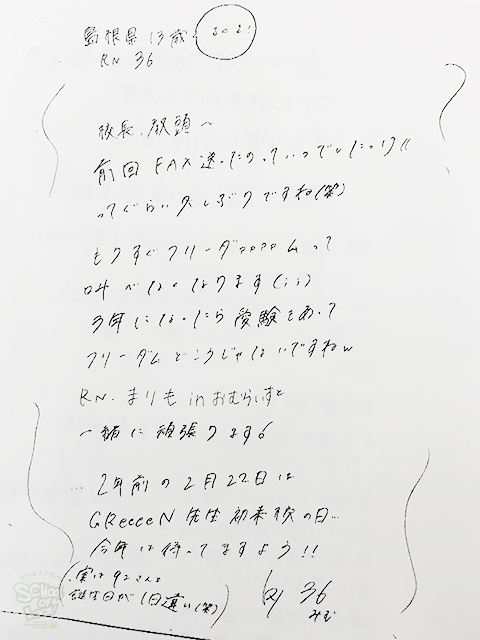 島根県 13歳
RN 36
校長、教頭〜
前回 FAX送ったのっていつでしたっけ!!
ってぐらい久しぶりですね(笑)
もうすぐフリーダァァァァムって
叫べなくなります(;;)
3年になったら受験もあって
フリーダムどころじゃないですねw
RN.まりもinおむらいすと
一緒に頑張ります6
2年前の2月22日は
GReeeeN先生初来校の日…
今年は待ってますよう!!
(実は92さんと
誕生日が1日違い(笑))
by 36
みむ